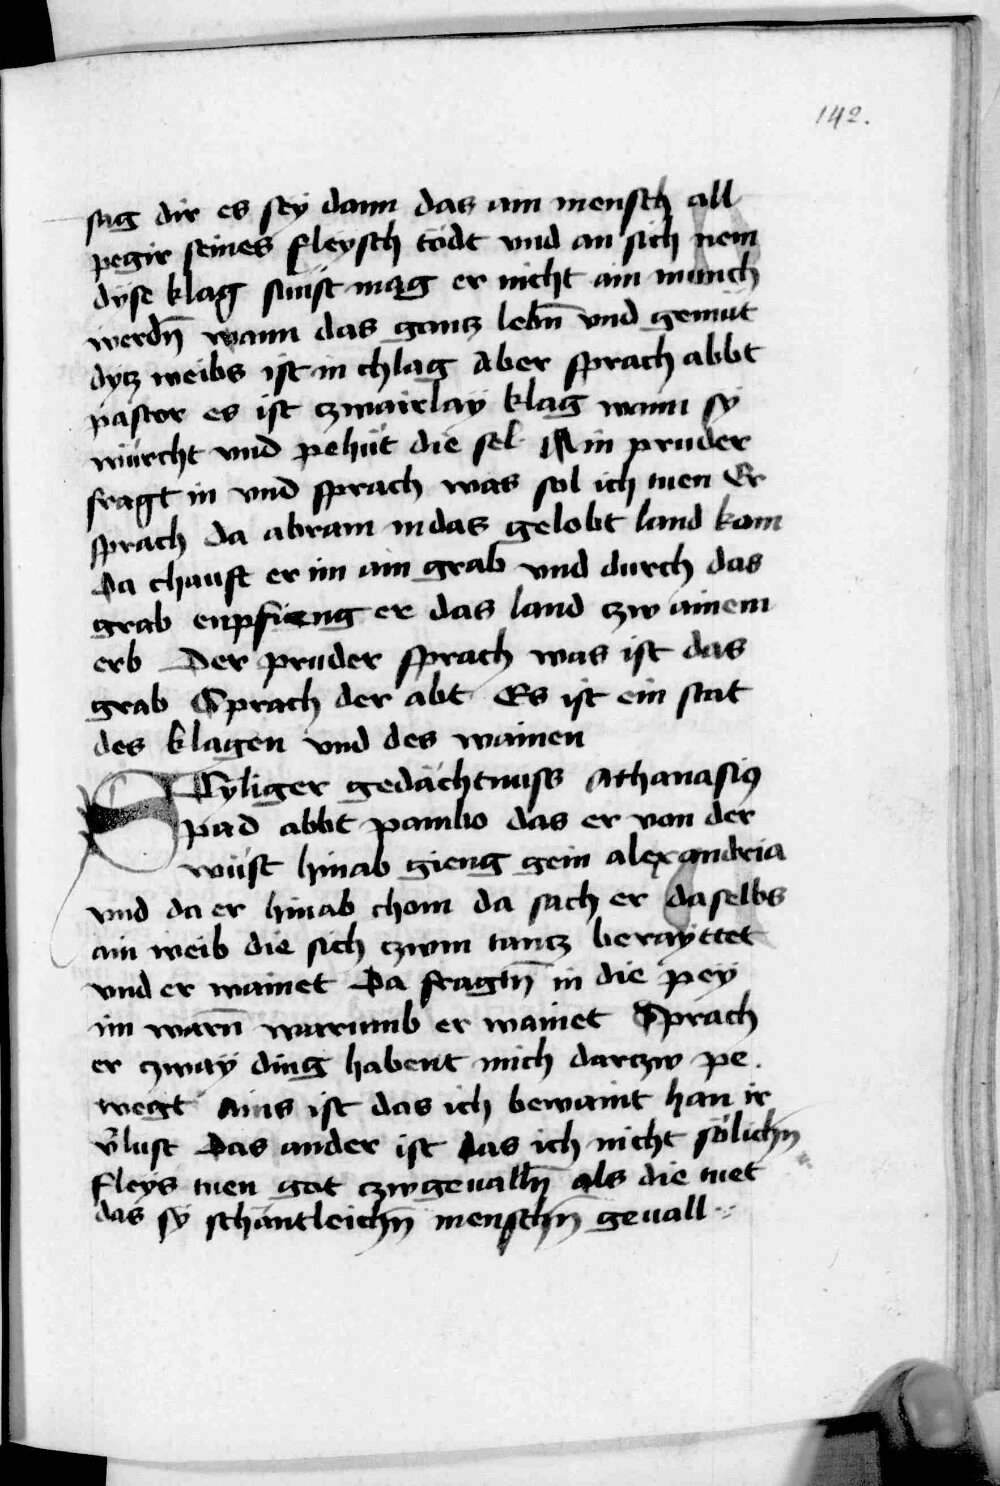 142.
sag dir es sey dann das ain mensch all
pegir seines fleysch tödt vnd an sich nem
dyse klag sunst mag er nicht ain munch
werdn̄ wann das gantz lebn̄ vnd gemüt
dytz weibs ist in chlag Aber sprach abbt
pastor es ist czwairlay klag wann sy
würcht vnd pehüt die sel Ain pruder
fragt in vnd sprach was sol ich tuen Er
sprach da abram in das gelobt land kam
Da chauft er im ain grab vnd durch das
grab enpfieng er das land czw ainem
erb Der pruder sprach was ist das
grab Sprach der abt Es ist ein stat
des klagen vnd des wainen
Säliger gedächtnuss Athanasius
pad abbt pambo das er von der
wüst hinab gieng gein alexandria
vnd da er hinab chom da sach er daselbs
ain weib die sich czwm tantz berayttet
vnd er wainet Da fragtn̄ in die pey
im warn̄ warumb er wainet Sprach
er czway ding habent mich darczw pe.
wegt Ains ist das ich bewaint han ir
v̄lust Das ander ist das ich nicht sölichn̄
fleys tuen got czwgeualln̄ als die tuet
das sy schantleichn̄ menschn̄ geuall